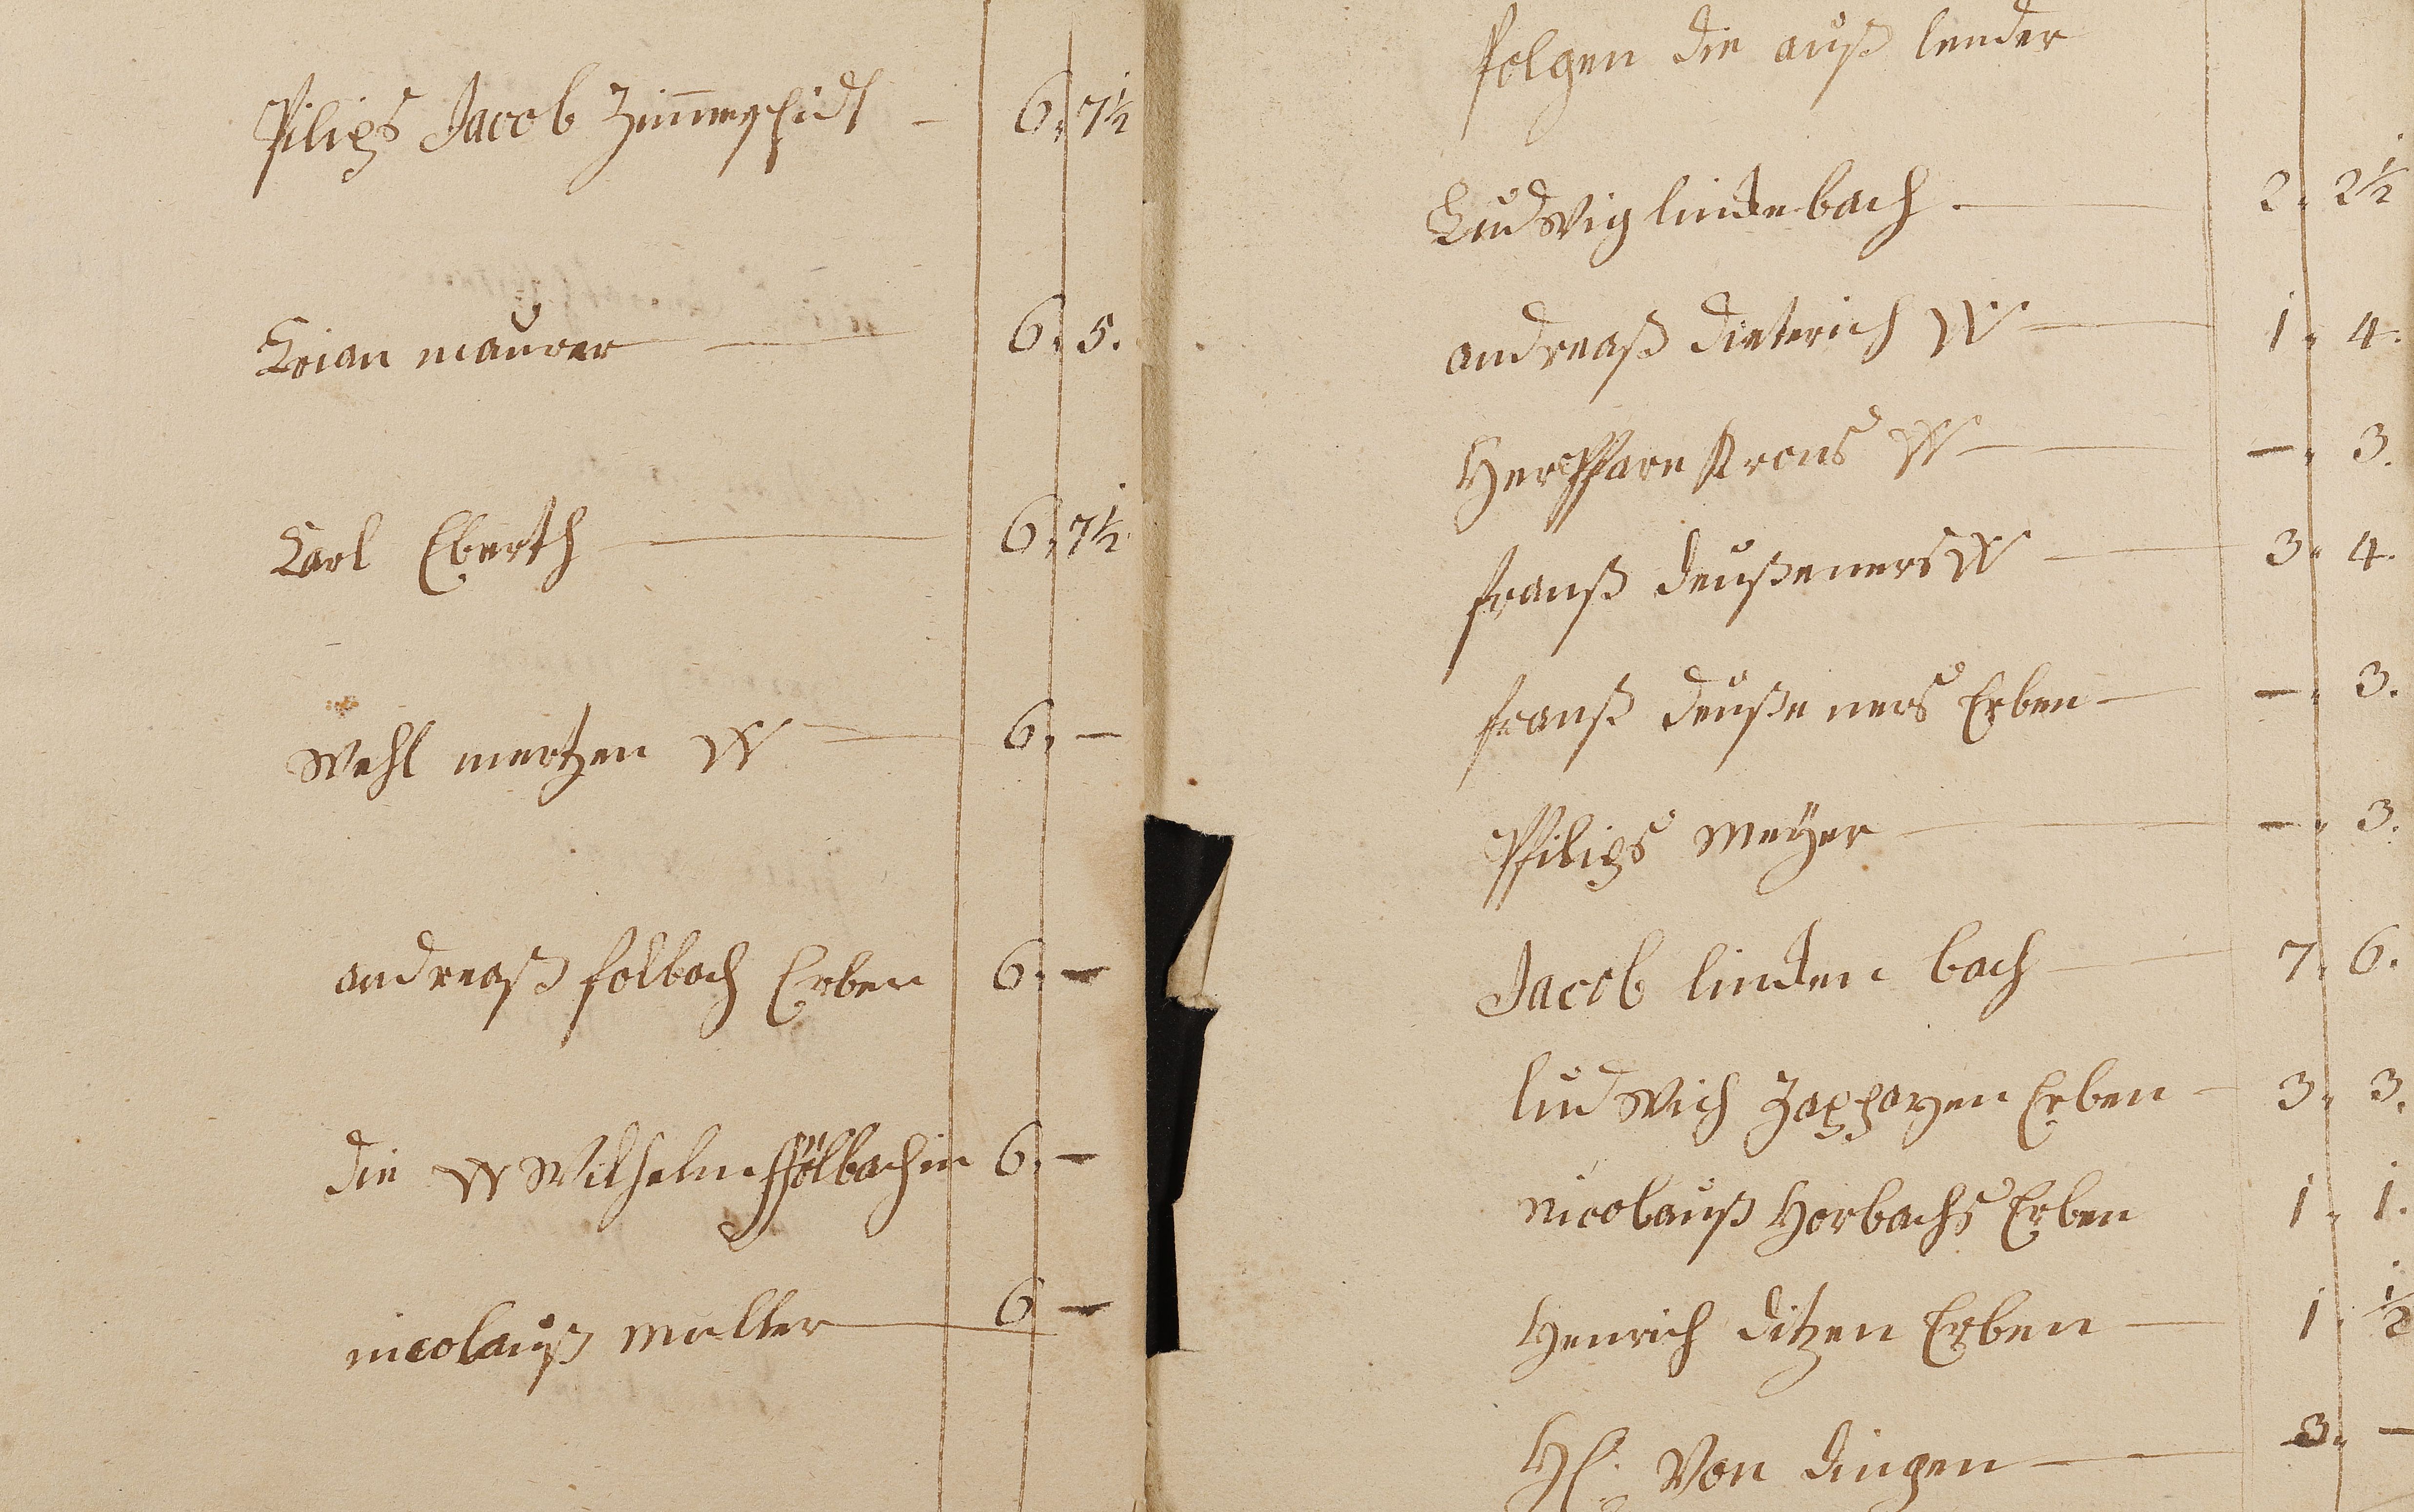 Pilips Jacob Zimmerschidt – 6. 7½
Krian maurer — 6. 5.
Carl Eberth — 6. 7½
Wehl mertzen W — 6. –
andreaß folbach Erben 6. –
die W Wilhelm ffölbachin 6. –
nicolauß muller — 6 –
folgen die auß lender
Ludwig lindebach — 2. 2½
andreaß dieterich W — 1. 4.
Her Pfare Krons W — –. 3.
franß deußeners W — 3. 4.
franß deußeners Erben – –. 3.
Philips meÿer — –. 3.
Jacob linden bach — 7. 6.
ludwich Zappayen Erben – 3. 3.
nicolauß Horbachs Erben 1. 1.
Henrich ditzen Erben — 1. ½
H. Von dingen — 3. –